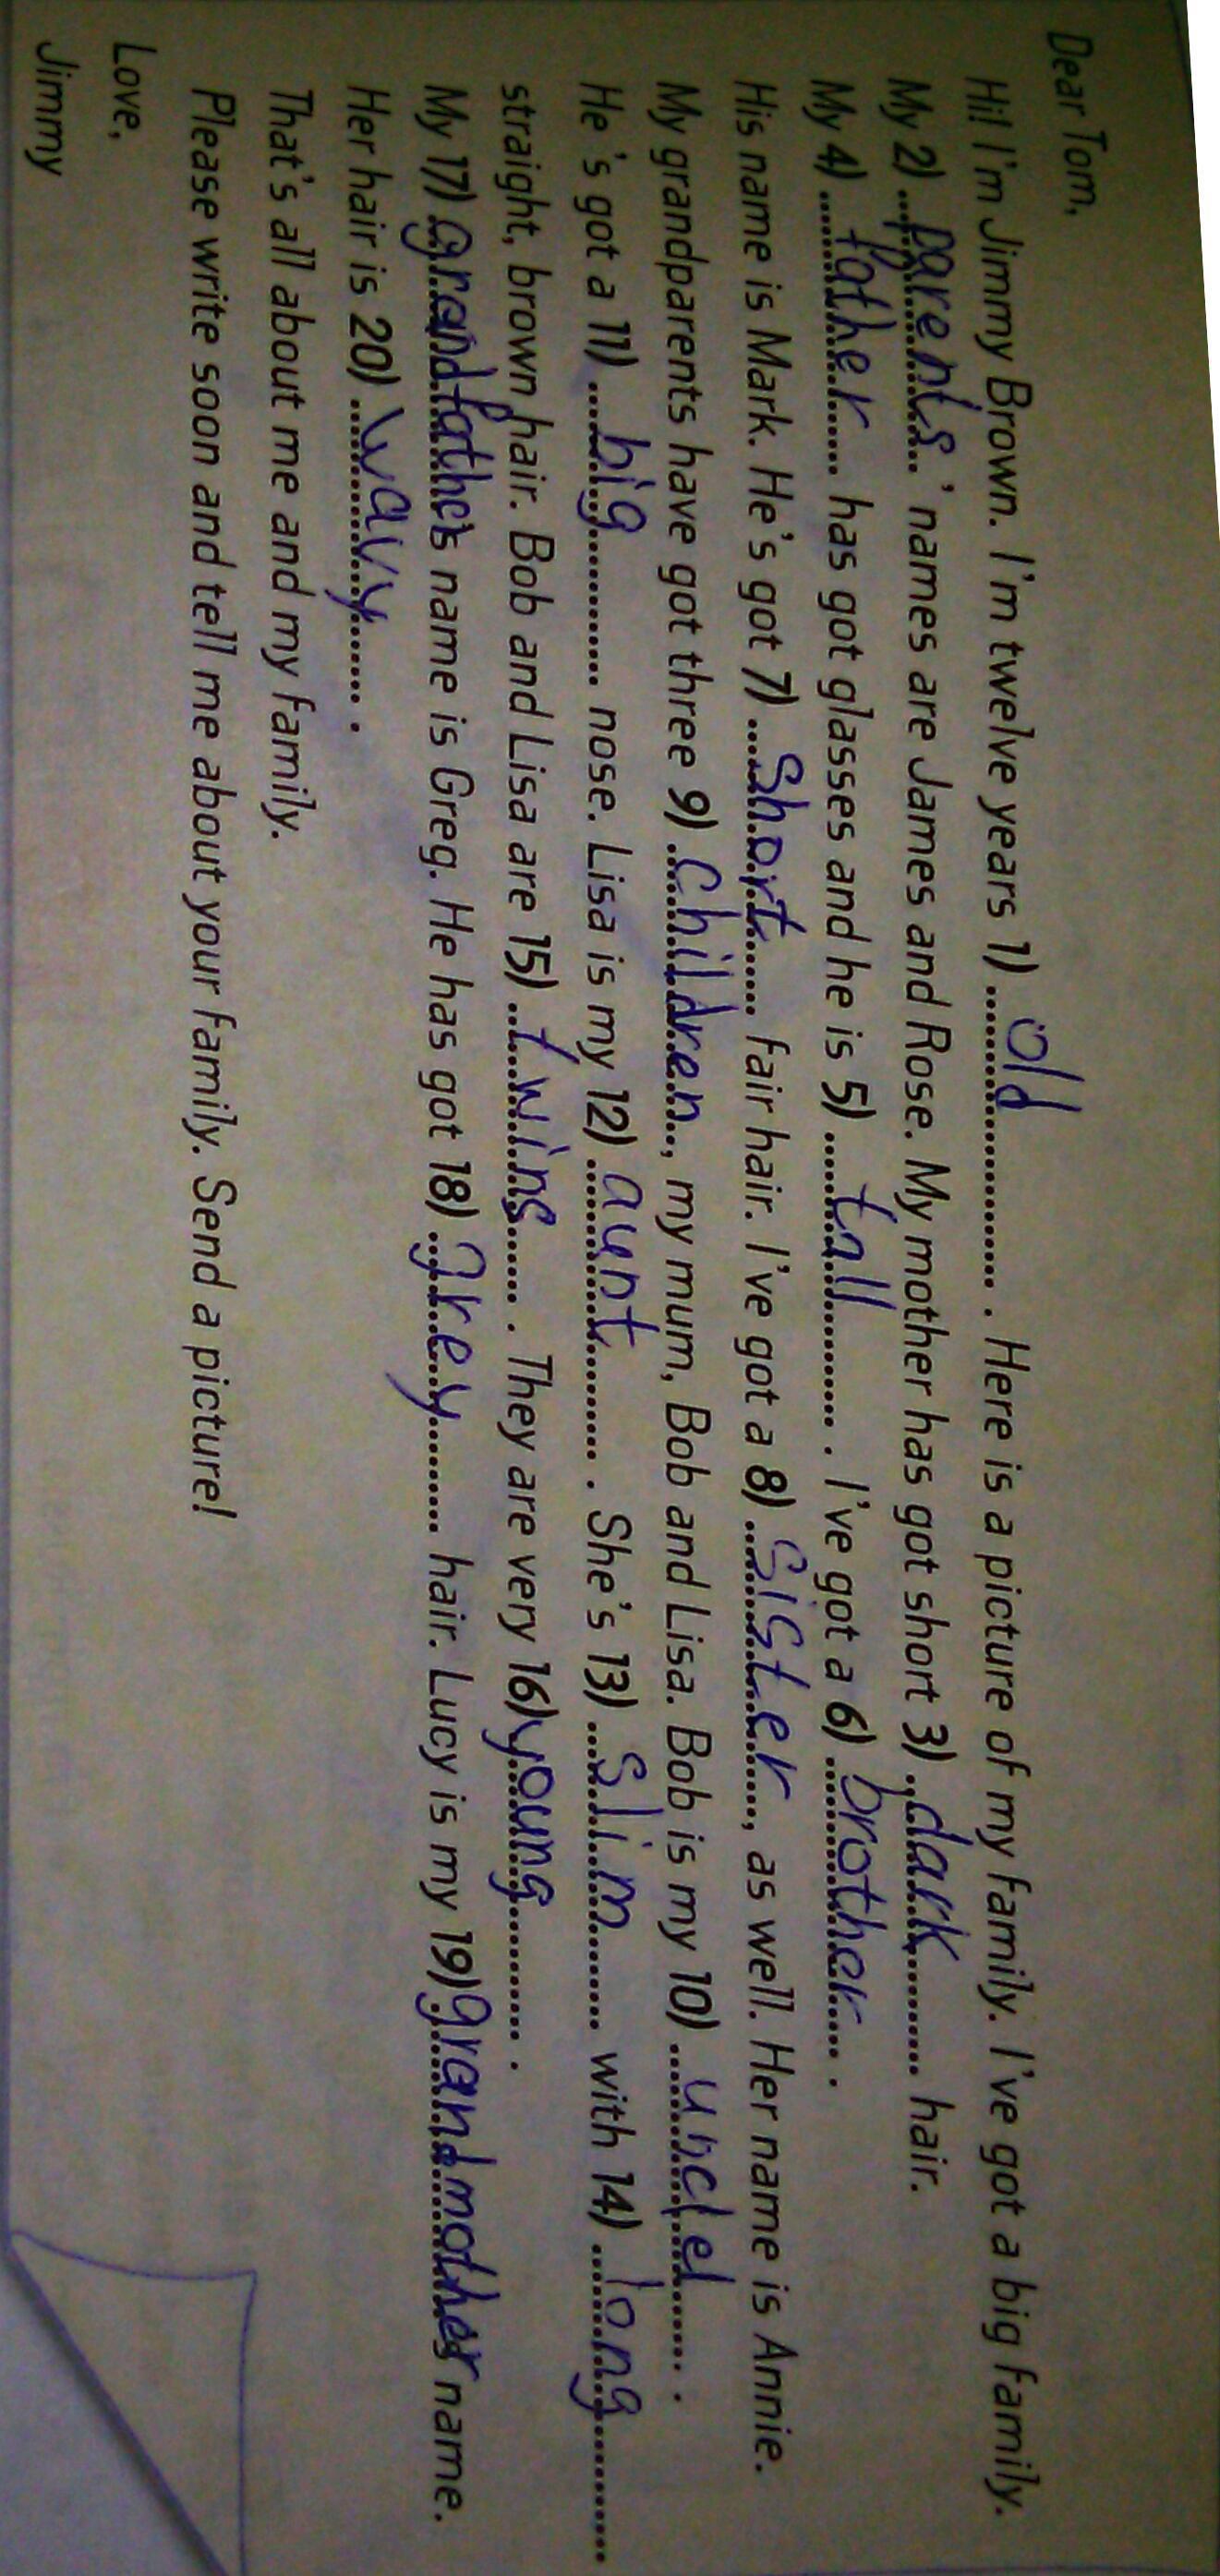 Dear Tom,
Hi! I'm Jimmy Brown. I'm twelve years 1) old. Here is a picture of my family. I've got a big family.
My 2) parents' names are James and Rose. My mother has got short 3) dark hair.
My 4) father has got glasses and he is 5) tall. I've got a 6) brother.
His name is Mark. He's got 7) Short fair hair. I've got a 8) Sister, as well. Her name is Annie.
My grandparents have got three 9) Children, my mum, Bob and Lisa. Bob is my 10) uncle.
He's got a 11) big nose. Lisa is my 12) aunt. She's 13) Slim with 14) long
straight, brown hair. Bob and Lisa are 15) twins. They are very 16) young.
My 17) grandfather's name is Greg. He has got 18) grey hair. Lucy is my 19) grandmother name.
Her hair is 20) wavy.
That's all about me and my family.
Please write soon and tell me about your family. Send a picture!
Love,
Jimmy